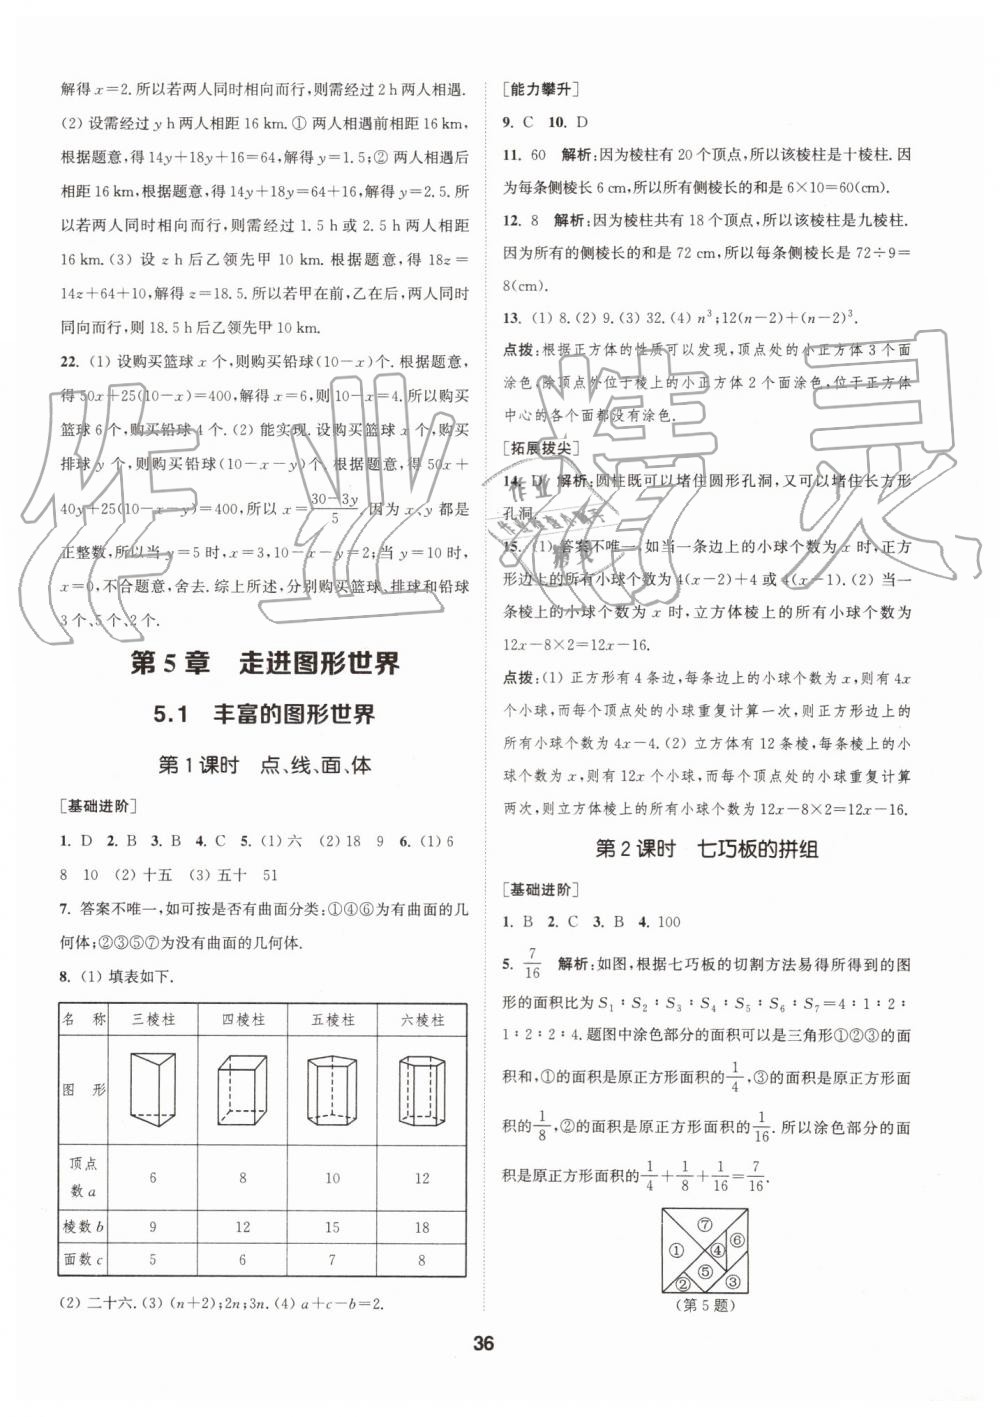 解得 x=2. 所以若两人同时相向而行,则需经过 2 h 两人相遇.
(2) 设需经过 y h 两人相距 16 km. ① 两人相遇前相距 16 km,
根据题意,得 14y+18y+16=64,解得 y=1.5;② 两人相遇后
相距 16 km,根据题意,得 14y+18y=64+16,解得 y=2.5. 所
以若两人同时相向而行,则需经过 1.5 h 或 2.5 h 两人相距
16 km. (3) 设 z h 后乙领先甲 10 km. 根据题意,得 18z=
14z+64+10,解得 z=18.5. 所以若甲在前,乙在后,两人同时
同向而行,则 18.5 h 后乙领先甲 10 km.
22. (1) 设购买篮球 x 个,则购买铅球(10-x)个. 根据题意,
得 50x+25(10-x)=400,解得 x=6,则 10-x=4. 所以购买
篮球 6 个,购买铅球 4 个. (2) 能实现. 设购买篮球 x 个,购买
排球 y 个,则购买铅球(10-x-y)个. 根据题意,得 50x+
40y+25(10-x-y)=400,所以 x=\frac{30-3y}{5}. 因为 x、y 都是
正整数,所以当 y=5 时,x=3,10-x-y=2;当 y=10 时,
x=0,不合题意,舍去. 综上所述,分别购买篮球、排球和铅球
3 个、5 个、2 个.
第 5 章 走进图形世界
5.1 丰富的图形世界
第 1 课时 点、线、面、体
[基础进阶]
1. D 2. B 3. B 4. C 5. (1) 六 (2) 18 9 6. (1) 6
8 10 (2) 十五 (3) 五十 51
7. 答案不唯一,如可按是否有曲面分类:①④⑥为有曲面的几
何体;②③⑤⑦为没有曲面的几何体.
8. (1) 填表如下.
名 称 三棱柱 四棱柱 五棱柱 六棱柱
图 形
顶点
数 a 6 8 10 12
棱数 b 9 12 15 18
面数 c 5 6 7 8
(2) 二十六. (3) (n+2);2n;3n. (4) a+c-b=2.
[能力攀升]
9. C 10. D
11. 60 解析:因为棱柱有 20 个顶点,所以该棱柱是十棱柱. 因
为每条侧棱长 6 cm,所以所有侧棱长的和是 6×10=60(cm).
12. 8 解析:因为棱柱共有 18 个顶点,所以该棱柱是九棱柱.
因为所有的侧棱长的和是 72 cm,所以每条侧棱长是 72÷9=
8(cm).
13. (1) 8. (2) 9. (3) 32. (4) n³;12(n-2)+(n-2)³.
点拨:根据正方体的性质可以发现,顶点处的小正方体 3 个面
涂色,除顶点外位于棱上的小正方体 2 个面涂色,位于正方体
中心的各个面都没有涂色.
[拓展拔尖]
14. D 解析:圆柱既可以堵住圆形孔洞,又可以堵住长方形
孔洞.
15. (1) 答案不唯一,如当一条边上的小球个数为 x 时,正方
形边上的所有小球个数为 4(x-2)+4 或 4(x-1). (2) 当一
条棱上的小球个数为 x 时,立方体棱上的所有小球个数为
12x-8×2=12x-16.
点拨:(1) 正方形有 4 条边,每条边上的小球个数为 x,则有 4x
个小球,而每个顶点处的小球重复计算一次,则正方形边上的
所有小球个数为 4x-4. (2) 立方体有 12 条棱,每条棱上的小
球个数为 x,则有 12x 个小球,而每个顶点处的小球重复计算
两次,则立方体棱上的所有小球个数为 12x-8×2=12x-16.
第 2 课时 七巧板的拼组
[基础进阶]
1. B 2. C 3. B 4. 100
5. \frac{7}{16} 解析:如图,根据七巧板的切割方法易得所得到的图
形的面积比为 S₁∶S₂∶S₃∶S₄∶S₅∶S₆∶S₇=4∶1∶2∶
1∶2∶2∶4. 题图中涂色部分的面积可以是三角形①②③的面
积和,①的面积是原正方形面积的\frac{1}{4},③的面积是原正方形面
积的\frac{1}{8},②的面积是原正方形面积的\frac{1}{16}. 所以涂色部分的面
积是原正方形面积的\frac{1}{4}+\frac{1}{8}+\frac{1}{16}=\frac{7}{16}.
⑦
① ④ ⑥
② ⑤ ③
(第 5 题)
36
作业精灵